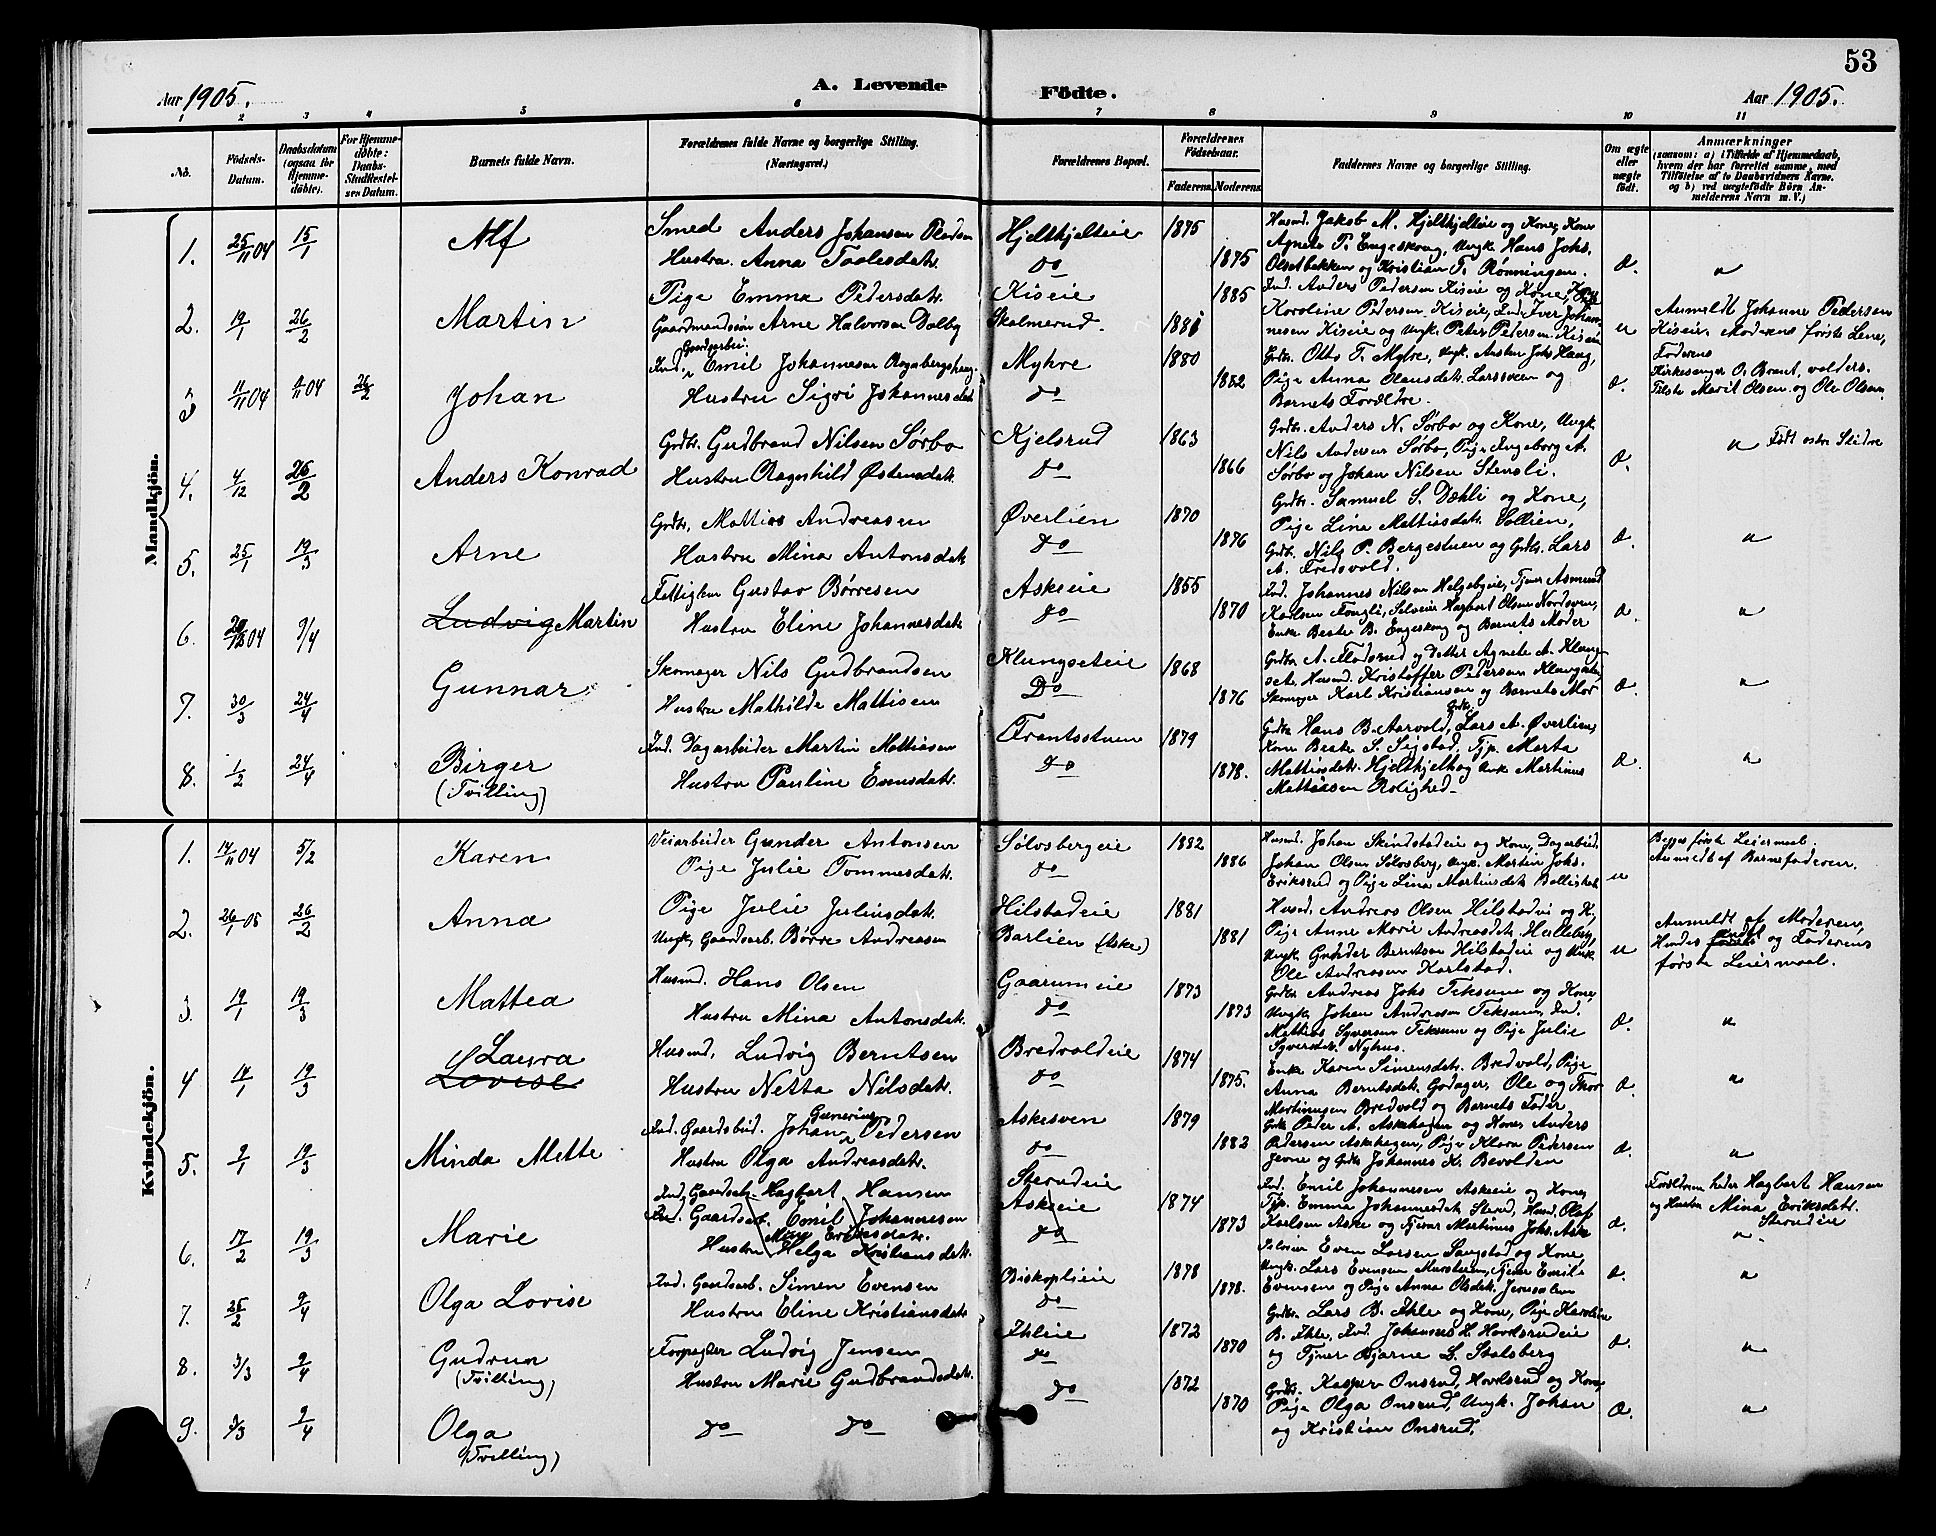 53
Aar 1905.
A. Levende
Födte.
Aar 1905.
1 2 3 4 5 6 7 8 9 10 11
No.
Födsels-
Datum.
Daabsdatum
(ogsaa for
Hjemme-
döbte).
For Hjemme-
döbte:
Daabs-
Stadfæstel-
sen Datum.
Barnets fulde Navn.
Forældrenes fulde Navne og borgerlige Stilling.
(Næringsvei.)
Forældrenes Bopæl.
Forældrenes
Födselsaar.
Faderens. Moderens.
Faddernes Navne og borgerlige Stilling.
Om ægte
eller
uægte
født.
Anmærkninger
(saasom: a) i Tilfælde af Hjemmedaab,
hvem der har forrettet samme, med
Tilföielse af to Daabsvidners Navne.
og b) ved uægtefödte Börn An-
melderens Navn m. V.)
Mandkjön.
1. 25/11 04 15/1 Alf
Smed Anders Johansen
Hustru Anna Taalesdatr.
Hjelthjelteie
do
1875
1875
Husmd. Jakob M. Hjelthjelteie og Kone, Kone
Agnete T. Engeskoug, Ungk. Hans Johs.
Olsetbakken og Kristian T. Rønningen.
Æ.
"
2. 19/1 26/2 Martin
Pige Emma Pedersdatr.
Gaardmandssön Arne Halvorsen Dalby
Kiseie
Skolmerud.
1885
Ind. Anders Pedersen Kiseie og Kone, Pige
Karoline Pedersen Kiseie, Ind. Iver Johan-
nesen Kiseie og Ungk. Peter Pedersen Kiseie
u
Anmeldt Johannes Pedersen
Kiseie, Moderens første Leie,
Faderens
3 11/11 04 11/11 04 26/2 Johan
Ind. Gaardarbei. Emil Johannesen
Hustru Sigri Johannesdatr.
Myhre
do
1880
1882
Grdbr. Otto T. Myhre, Ungk. Anton Johs. Haug,
Pige Anna Olausdatr. Larssveen og
Barnets Forældre.
Æ.
Kirkesanger O. Brant, volders.
Marit Olsen og Ole Olsen.
4. 4/12 26/2 Anders Konrad
Grdbr. Gudbrand Nilsen Sørbo
Hustru Ragnhild Østensdatr.
Kjelsrud
do
1863
1866
Grdbr. Anders N. Sørbo og Kone, Ungk.
Nils Andersen Sørbo, Pige Ingeborg A.
Sørbo og Johan Nilsen Stensli.
Æ.
" Født østre Slidre
5. 25/1 19/3 Arne
Grdbr. Mattias Andreasen
Hustru Mina Antonsdatr.
Øverlien
do
1870
1876
Grdbr. Samuel S. Dæhli og Kone,
Pige Lina Mattisdatr. Sollien,
Grdb. Nils P. Bergestuen og Grdbr. Lars
A. Fredsvold.
Æ.
"
6. 04 9/4 Ludvig Martin
Fattiglem Gustav Børresen
Hustru Eline Johannesdatr.
Askeie
do
1855
1870
Ind. Johannes Nilsen Helgebyeie, Tjener Asmund
Karlsen Fougli, Selveier Herbert Olsen Nordsven,
Enke Beate B. Engeskoug og Barnets Moder
Æ.
"
7. 30/3 24/4 Gunnar
Skomager Nils Gudbrandsen
Hustru Mathilde Mattisen
Klungseteie
Do
1868
1876
Grdbr. A. Flodsrud og Datter Agnete A. Klung-
set, Husmd. Kristoffer Pedersen
Skomager Karl Kristiansen og Barnets Mor
Æ.
"
8. 1/2 24/4 Birger
(Tvilling)
Ind. Dagarbeider Martin Mattiasen
Hustru Pauline Evensdatr.
Frantsstuen
do
1879
1878.
Grdbr. Hans B. Aarvold, Grdbr. Lars A. Øverlien,
Kone Beate S. Sigstad, Tjp. Marta
Mattisdatr. Hjelthjelt og Ungk. Martinus
Mattiasen Rolighed.
Æ.
"
Kvindekjön.
1. 14/11 04 5/2 Karen
Veiarbeider Gunder Antonsen
Pige Julie Tommesdatr.
Sølvsbergeie
do
1882
1886
Husmd. Johan Skindstadeie og Kone, Dagarbeid.
Johan Olsen Sølvsberg, Ungk. Martin Johs.
Eriksrud og Pige Lina Martinsdatr.
u
Begges første Leiermaal.
Anmeldt af Barnefaderen.
2. 26/1 05 26/2 Anna
Pige Julie Juliusdatr.
Ungk. Gaardsarb. Børre Andreasen
Hilstadeie
Barlien (Aske)
1881
1881
Husmd. Andreas Olsen Hilstadei og K.,
Pige Anne Marie Andreasdatr. Halleberg,
Ungk. Gunder Berntsen Hilstadeie og Ungk.
Ole Andreasen Karlstad.
u
Anmeldt af Moderen,
Hendes andet og Faderens
første Leiermaal.
3. 19/1 19/3 Mattea
Husmd. Hans Olsen
Hustru Mina Antonsdatr.
Gaarumeie
do
1873
1873
Grdbr. Andreas Johs Teksum og Kone,
Ungk. Johan Andersen Teksum, Ind.
Mattias Syversen Teksum og Pige Julie
Syversdatr. Nyhus.
Æ.
"
4 14/1 19/3 Laura
Lovise
Husmd. Ludvig Berntsen
Hustru Netta Nilsdatr.
Bredvoldeie
do
1874
1875.
Enke Karen Simensdatr. Bredvold, Pige
Anna Berntsdatr. Godager, Ole og Thor
Martinusen Bredvold og Barnets Fader
Æ.
"
5. 9/1 19/3 Minda Mette
Ind. Gaardsbud. Johan Gunerius Pedersen
Hustru Olga Andreasdatr.
Askesven
do
1879
1882
Grdb. Peder A. Askehagen og Kone, Anders
Pedersen Askehagen, Pige Klara Pedersen
Jevne og Grdb. Johannes K. Bevolden
Æ.
"
6. 17/2 19/3 Marie
Ind. Gaardsarb. Hagbart Hansen
Ind. Gaardsarb. Emil Johannesen
Mina Eriksdatr.
Hustru Helga Kristiansdatr.
Sterudeie
Askeie
do
1874
1873
Ind. Emil Johannesen Askeie og Kone,
Tjp. Emma Johannesdatr. Sterud, Olaf
Karlsen Aske og Tjener Martinus Johs. Aske
Æ.
Forældrene heder Hagbart Hansen
og Hustru Mina Eriksdatr.
Sterudeie
"
7. 25/2 9/4 Olga Lovise
Ind. Gaardsarb. Simen Evensen
Hustru Eline Kristiansdatr.
Biskoplieie
do
1878
1878.
Selveier Even Larsen Saugstad og Kone
Ungk. Lars Evensen Murstuen, Tjener Emil
Evensen og Pige Anna Olsdatr. Jerusalem
Æ.
"
8. 3/3 9/4 Gudrun
(Tvilling)
Forpagter Ludvig Jensen
Hustru Marie Gudbrandsdatr.
Ihleie
do
1872
1870
Grdbr. Lars B. Ihle og Kone, Pige Karoline
B. Ihle, Ind. Johannes H. Hovelsrudeie
og Tjener Bjarne L. Stalsberg
Æ.
"
9. 3/3 9/4 Olga
(Tvilling)
do do
do
1872
1870
Grdbr. Kasper Onsrud, Hovelsrud og Kone,
Pige Olga Onsrud, Ungk. Johan
og Kristian Onsrud,
Æ.
"